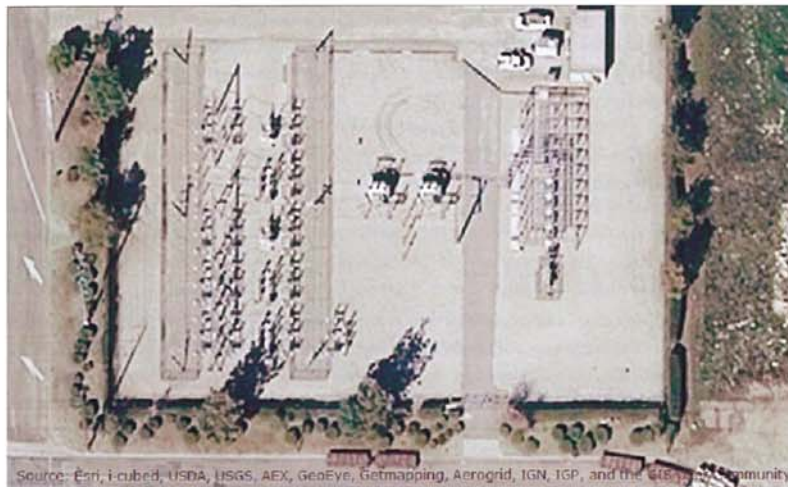 Source: Esri, i-cubed, USDA, USGS, AEX, GeoEye, Getmapping, Aerogrid, IGN, IGP, and the GIS Community